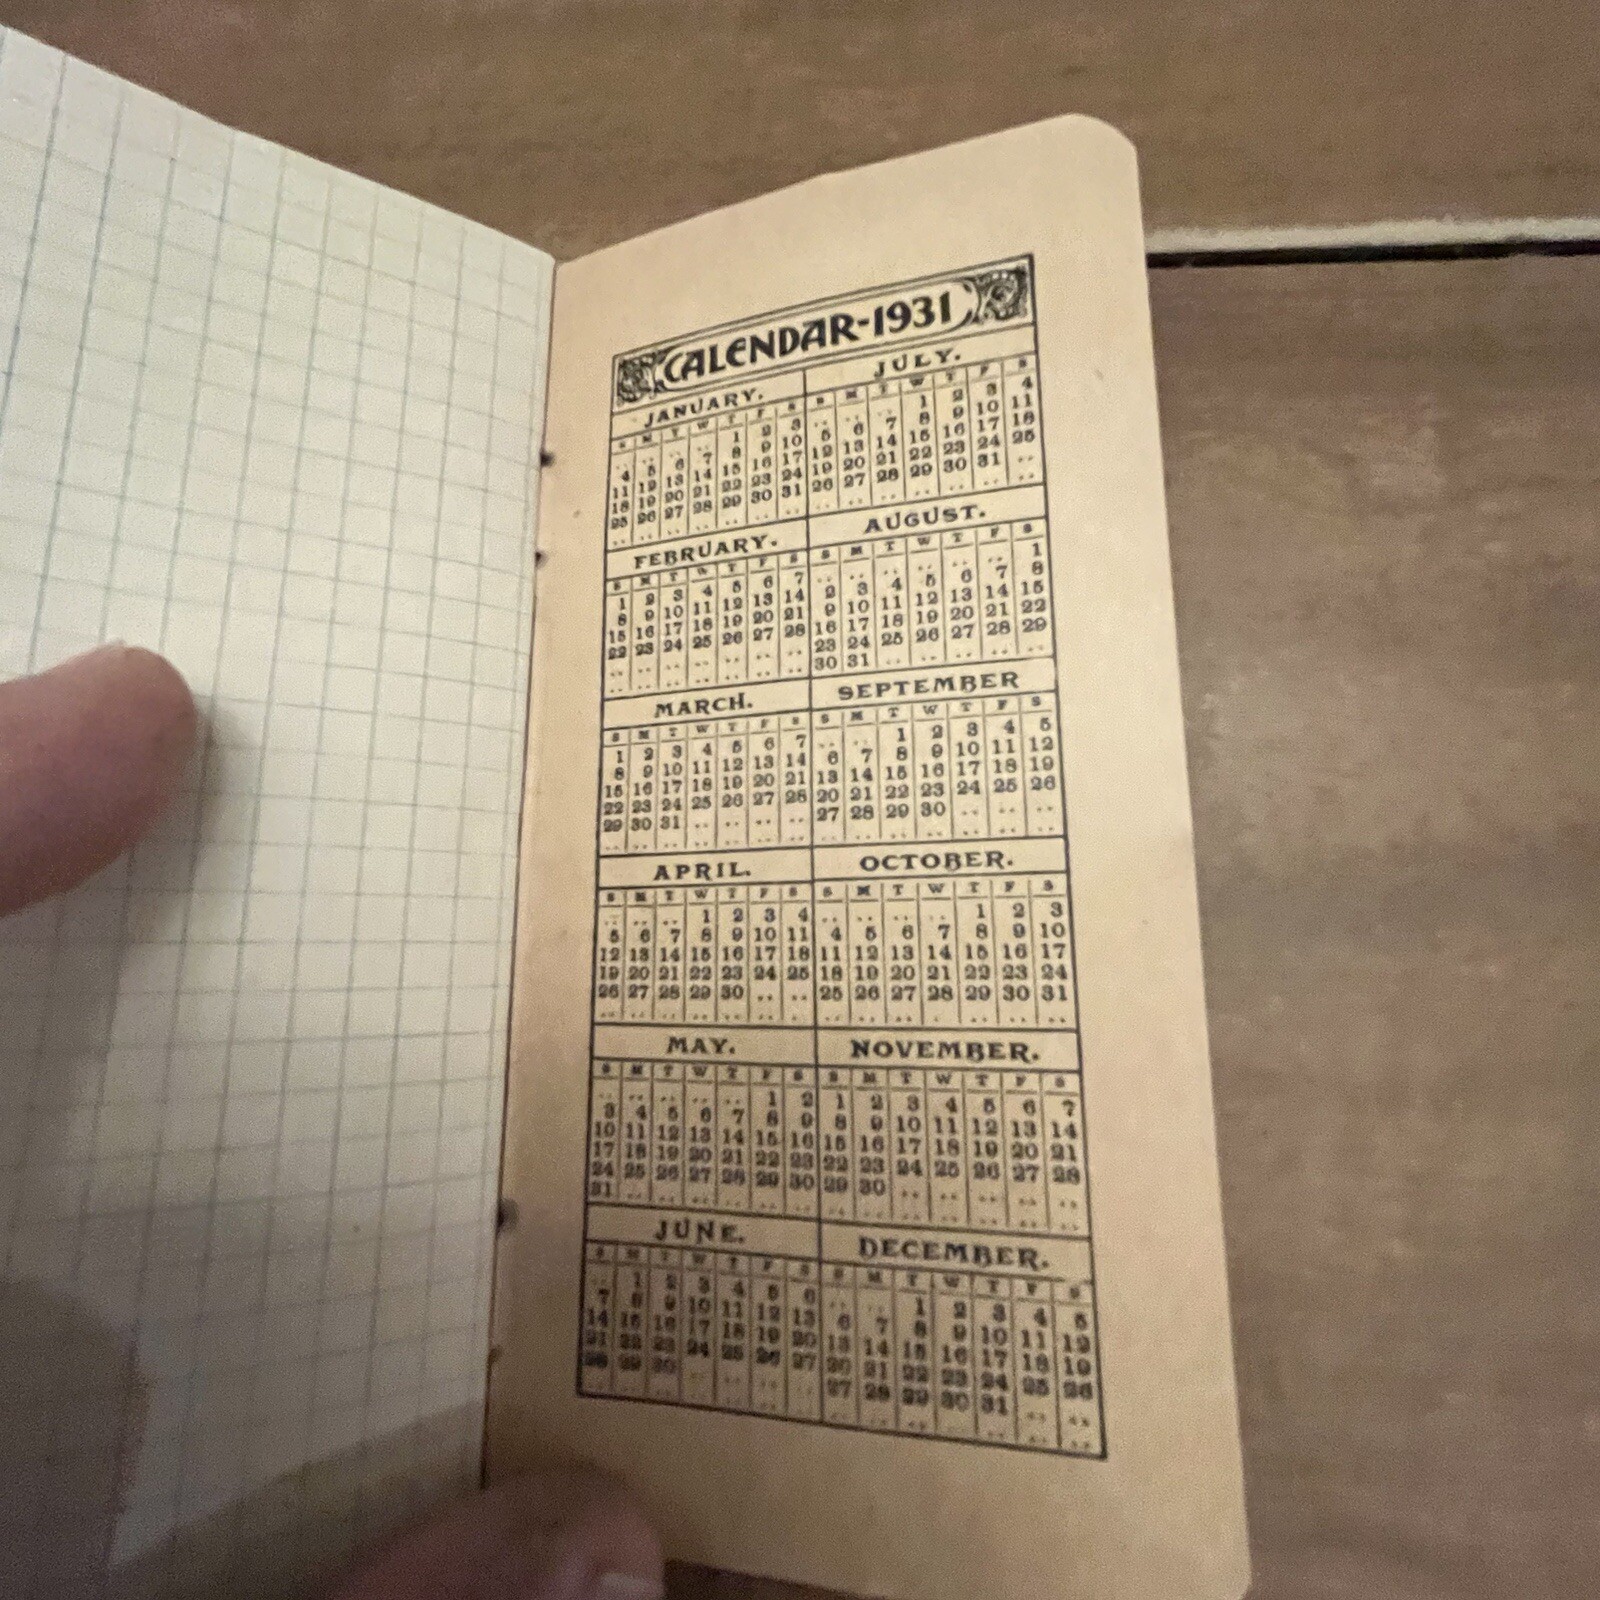 CALENDAR-1931
JANUARY.
S M T W T F S
.. .. .. .. 1 2 3
4 5 6 7 8 9 10
11 12 13 14 15 16 17
18 19 20 21 22 23 24
25 26 27 28 29 30 31
.. .. .. .. .. .. ..
FEBRUARY.
S M T W T F S
1 2 3 4 5 6 7
8 9 10 11 12 13 14
15 16 17 18 19 20 21
22 23 24 25 26 27 28
.. .. .. .. .. .. ..
.. .. .. .. .. .. ..
MARCH.
S M T W T F S
1 2 3 4 5 6 7
8 9 10 11 12 13 14
15 16 17 18 19 20 21
22 23 24 25 26 27 28
29 30 31 .. .. .. ..
.. .. .. .. .. .. ..
APRIL.
S M T W T F S
.. .. .. 1 2 3 4
5 6 7 8 9 10 11
12 13 14 15 16 17 18
19 20 21 22 23 24 25
26 27 28 29 30 .. ..
.. .. .. .. .. .. ..
MAY.
S M T W T F S
.. .. .. .. .. 1 2
3 4 5 6 7 8 9
10 11 12 13 14 15 16
17 18 19 20 21 22 23
24 25 26 27 28 29 30
31 .. .. .. .. .. ..
JUNE.
S M T W T F S
.. 1 2 3 4 5 6
7 8 9 10 11 12 13
14 15 16 17 18 19 20
21 22 23 24 25 26 27
28 29 30 .. .. .. ..
.. .. .. .. .. .. ..
JULY.
S M T W T F S
.. .. .. 1 2 3 4
5 6 7 8 9 10 11
12 13 14 15 16 17 18
19 20 21 22 23 24 25
26 27 28 29 30 31 ..
.. .. .. .. .. .. ..
AUGUST.
S M T W T F S
.. .. .. .. .. .. 1
2 3 4 5 6 7 8
9 10 11 12 13 14 15
16 17 18 19 20 21 22
23 24 25 26 27 28 29
30 31 .. .. .. .. ..
SEPTEMBER
S M T W T F S
.. .. 1 2 3 4 5
6 7 8 9 10 11 12
13 14 15 16 17 18 19
20 21 22 23 24 25 26
27 28 29 30 .. .. ..
.. .. .. .. .. .. ..
OCTOBER.
S M T W T F S
.. .. .. .. 1 2 3
4 5 6 7 8 9 10
11 12 13 14 15 16 17
18 19 20 21 22 23 24
25 26 27 28 29 30 31
.. .. .. .. .. .. ..
NOVEMBER.
S M T W T F S
1 2 3 4 5 6 7
8 9 10 11 12 13 14
15 16 17 18 19 20 21
22 23 24 25 26 27 28
29 30 .. .. .. .. ..
.. .. .. .. .. .. ..
DECEMBER.
S M T W T F S
.. .. 1 2 3 4 5
6 7 8 9 10 11 12
13 14 15 16 17 18 19
20 21 22 23 24 25 26
27 28 29 30 31 .. ..
.. .. .. .. .. .. ..